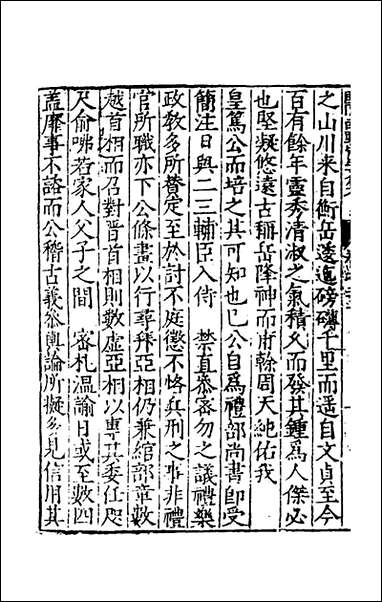 之山川来自衡岳逶迤磅礴千里而遥自文貞至今
百有餘年靈秀清淑之氣積久而發其鍾爲人傑必
也堅凝悠遠古稱岳降神而甫翰周天純佑我
皇篤公而培之其可知也已公自爲禮部尚書即受
簡注日與二三輔臣入侍　禁直叅密勿之議禮樂
政教多所賛定至於討不庭懲不恪兵刑之事非禮
官所職亦下公條畫以行尋拜亞相仍兼綰部章數
越首相而召對晋首相則數虛亞相以專其委任咫
尺俞咈若家人父子之間　宻札温諭日或至數四
盖靡事不諮而公稽古義叅輿論所擬多見信用其